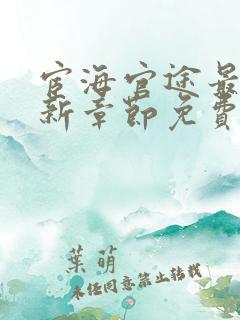 宦海官途最
新章節免費
葉萌
未经同意禁止转载